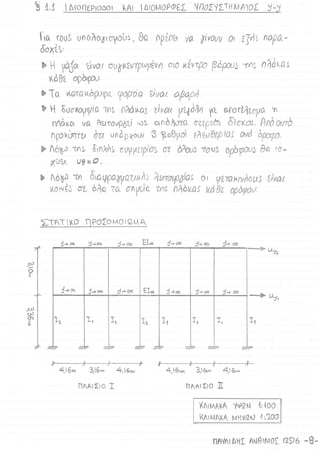 § 1.1 ΙΔΙΟΠΕΡΙΟΔΟΙ ΚΑΙ ΙΔΙΟΜΟΡΦΕΣ ΥΠΟΣΥΣΤΗΜΑΤΟΣ y-y
Για τους υπολογισμούς, θα πρέπει να γίνουν οι εξής παρα-
δοχές:
Η μάζα είναι συγκεντρωμένη στο κέντρο βάρους της πλάκας
κάθε ορόφου
Τα κατακόρυφα φορτία είναι αβαρή
Η δυσκαμψία της πλάκας είναι μεγάλη με αποτέλεσμα η
πλάκα να λειτουργεί ως απόλυτα στερεός δίσκος. Από αυτό
προκύπτει ότι υπάρχουν 3 βαθμοί ελευθερίας ανά όροφο.
Λόγω της διπλής συμμετρίας σε όλους τους ορόφους θα ισ-
χύει uθ=0.
Λόγω της διαφραγματικής λειτουργίας οι μετακινήσεις είναι
κοινές σε όλα τα σημεία της πλάκας κάθε ορόφου.
ΣΤΑΤΙΚΟ ΠΡΟΣΟΜΟΙΩΜΑ
J→∞ J→∞ J→∞ EI∞ J→∞ J→∞ J→∞
uy2
J→∞ J→∞ J→∞ EI∞ J→∞ J→∞ J→∞
uy1
I2 I1 I1 I2 I1 I1 I1 I1
4,16m 3,16m 4,16m 4,16m 3,16m 4,16m
ΠΛΑΙΣΙΟ I ΠΛΑΙΣΙΟ II
ΚΛΙΜΑΚΑ ΥΨΩΝ 1:100
ΚΛΙΜΑΚΑ ΜΗΚΩΝ 1:200
ΠΑΥΛΙΔΗΣ ΑΝΘΙΜΟΣ 12516 -8-